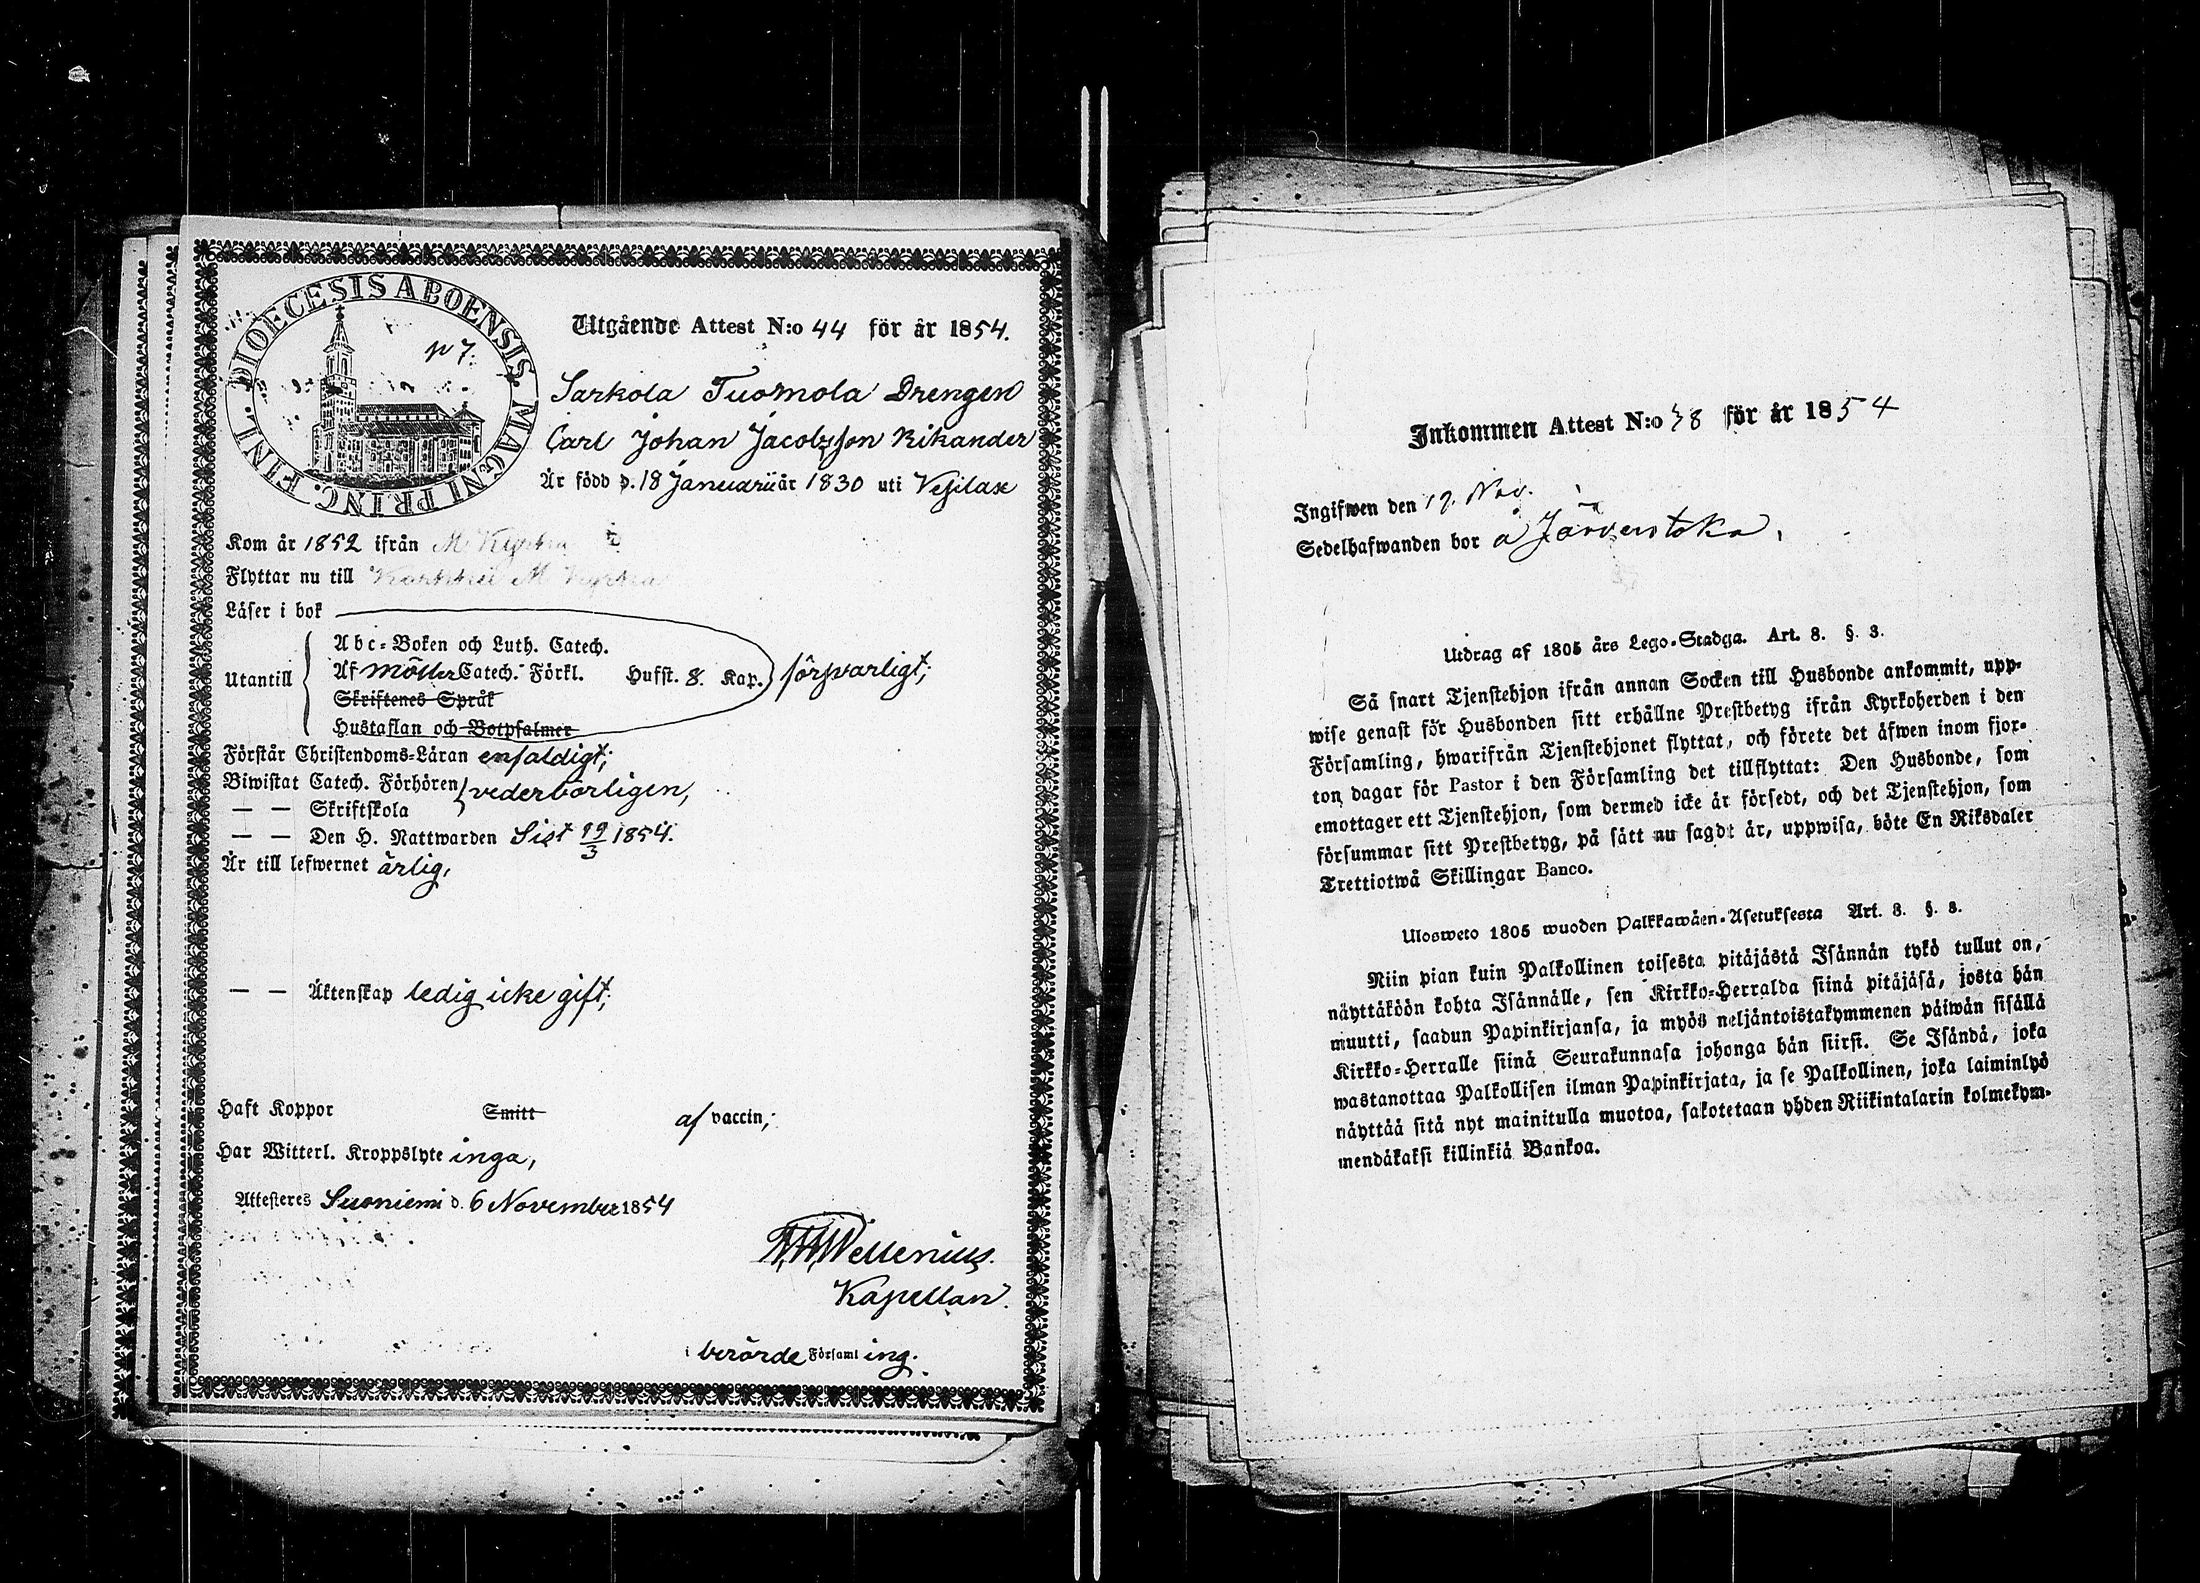 DIOECESIS ABOENSIS. MAGNI PRINC. FINL.
p 7.
Utgående Attest N:o 44 för år 1854.
Sarkola Tuomola Drengen
Carl Johan Jacobsson Kikander
Är född d. 18 Januarii år 1830 uti Vesilax
Kom år 1852 ifrån M Kyrka
Flyttar nu till M Kyrka
Läser i bok
Abc-Boken och Luth. Catech.
Utantill Af Möller Catech. Förkl. Hufst. 8. Kap. försvarligt;
Skriftenes Språk
Hustaflan och Botpsalmer
Förstår Christendoms-Läran enfaldigt;
Biwistat Catech. Förhören vederbörligen,
— — Skriftskola
— — Den H. Nattwarden Sist 19/3 1854.
Är till lefwernet ärlig,
— — Äktenskap ledig icke gift;
Haft Koppor Smitt af vaccin;
Har Witterl. Kroppslyte inga,
Attesteres Suoniemi d. 6 November 1854
Wellenius.
Kapellan.
i berörde Församling.
Inkommen Attest N:o 38 för år 1854
Ingifwen den 19. Nov.
Sedelhafwanden bor å Järvenstaka.
Utdrag af 1805 års Lego-Stadga. Art. 8. §. 3.
Så snart Tjenstehjon ifrån annan Socken till Husbonde ankommit, upp-
wise genast för Husbonden sitt erhållne Prestbetyg ifrån Kyrkoherden i den
Församling, hwarifrån Tjenstehjonet flyttat, och förete det äfwen inom fjor-
ton dagar för Pastor i den Församling det tillflyttat: Den Husbonde, som
emottager ett Tjenstehjon, som dermed icke är försedt, och det Tjenstehjon, som
försummar sitt Prestbetyg, på sätt nu sagdt är, uppwisa, böte En Riksdaler
Trettiotwå Skillingar Banco.
Ulosweto 1805 wuoden Palkkawäen-Asetuksesta Art. 8. §. 3.
Niin pian kuin Palkollinen toisesta pitäjästä Isännän tykö tullut on,
näyttäköön kohta Isännälle, sen Kirkko-Herralda siinä pitäjäsä, josta hän
muutti, saadun Papinkirjansa, ja myös neljäntoistakymmenen päiwän sisällä
Kirkko-Herralle siinä Seurakunnasa johonga hän siirsi. Se Isändä, joka
wastanottaa Palkollisen ilman Papinkirjata, ja se Palkollinen, joka laiminlyö
näyttää sitä nyt mainitulla muotoa, sakotetaan yhden Riikintalarin kolmekym-
mendäkaksi killinkiä Bankoa.